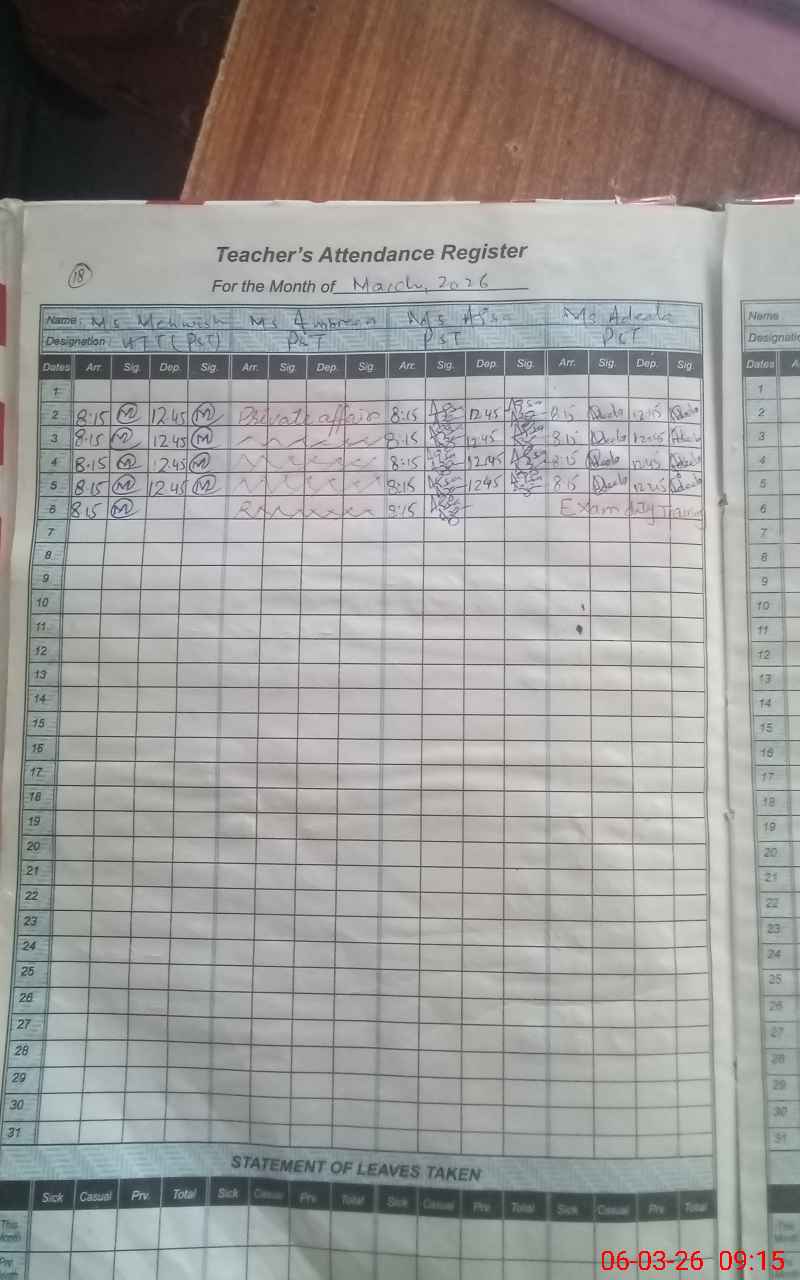 Teacher's Attendance Register
18
For the Month of March, 2026
Name: Ms Mehwish Ms Ambreen Ms Ms Adeela Name
Designation: (PST) PST PST PST Designation
Dates Arr. Sig. Dep. Sig. Arr. Sig. Dep. Sig. Arr. Sig. Dep. Sig. Arr. Sig. Dep. Sig. Dates
1 1
2 8:15 M 12:45 M Private affair 8:15 12:45 8:15 Adeela 12:45 Adeela 2
3 8:15 M 12:45 M 8:15 12:45 8:15 Adeela 12:45 Adeela 3
4 8:15 M 12:45 M 8:15 12:45 8:15 Adeela 12:45 Adeela 4
5 8:15 M 12:45 M 8:15 12:45 8:15 Adeela 12:45 Adeela 5
6 8:15 M 8:15 Exam duty Training 6
7 7
8 8
9 9
10 10
11 11
12 12
13 13
14 14
15 15
16 16
17 17
18 18
19 19
20 20
21 21
22 22
23 23
24 24
25 25
26 26
27 27
28 28
29 29
30 30
31 31
STATEMENT OF LEAVES TAKEN
Sick Casual Prv. Total Sick Casual Prv. Total Sick Casual Prv. Total Sick Casual Prv. Total
This Month
Prv. Month
06-03-26 09:15